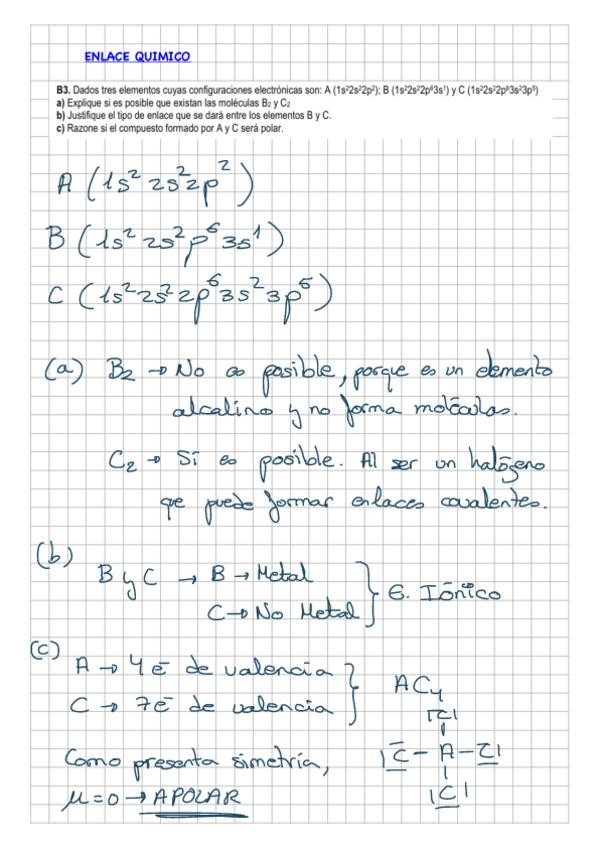 ENLACE QUIMICO
B3. Dados tres elementos cuyas configuraciones electrónicas son: A (1s²2s²2p²); B (1s²2s²2p⁶3s¹) y C (1s²2s²2p⁶3s²3p⁵)
a) Explique si es posible que existan las moléculas B₂ y C₂
b) Justifique el tipo de enlace que se dará entre los elementos B y C.
c) Razone si el compuesto formado por A y C será polar.
A (1s² 2s² 2p²)
B (1s² 2s² p⁶ 3s¹)
C (1s² 2s² 2p⁶ 3s² 3p⁵)
(a) B₂ → No es posible, porque es un elemento
alcalino y no forma moléculas.
C₂ → Sí es posible. Al ser un halógeno
que puede formar enlaces covalentes.
(b)
B y C → B → Metal
C → No Metal } E. Iónico
(c)
A → 4 e⁻ de valencia
C → 7 e⁻ de valencia } AC₄
|C|
|C – A – C|
|C|
Como presenta simetría,
μ = 0 → APOLAR